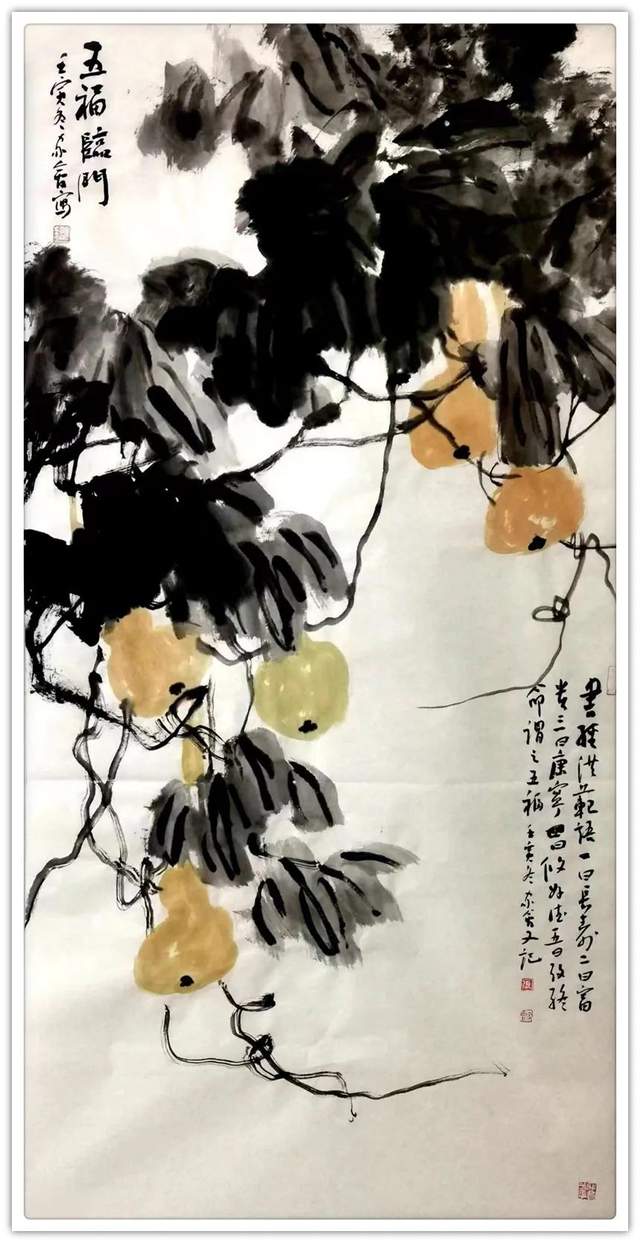 五福臨門
壬寅冬家寫
書經洪範語一曰長壽二曰富
贵三曰康寧四曰攸好德五曰考終
命謂之五福 壬寅冬家又記